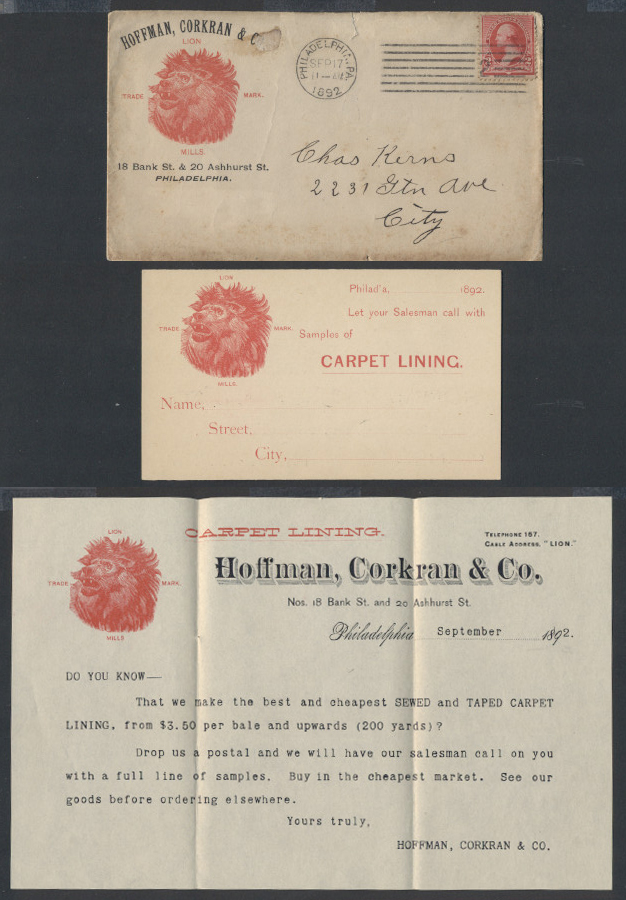 HOFFMAN, CORKRAN & C
LION
TRADE MARK.
MILLS
18 Bank St. & 20 Ashhurst St.
PHILADELPHIA.
PHILADELPHIA, PA.
SEP 17
11 — AM
1892
Chas Kerns
2231 Gtn Ave
City
LION
TRADE MARK.
MILLS.
Philad'a, 1892.
Let your Salesman call with
Samples of
CARPET LINING.
Name,
Street,
City,
LION
TRADE MARK.
MILLS
CARPET LINING.
TELEPHONE 187.
CABLE ADDRESS, "LION."
Hoffman, Corkran & Co.
Nos. 18 Bank St. and 20 Ashhurst St.
Philadelphia September 1892.
DO YOU KNOW—
That we make the best and cheapest SEWED and TAPED CARPET
LINING, from $3.50 per bale and upwards (200 yards)?
Drop us a postal and we will have our salesman call on you
with a full line of samples. Buy in the cheapest market. See our
goods before ordering elsewhere.
Yours truly,
HOFFMAN, CORKRAN & CO.